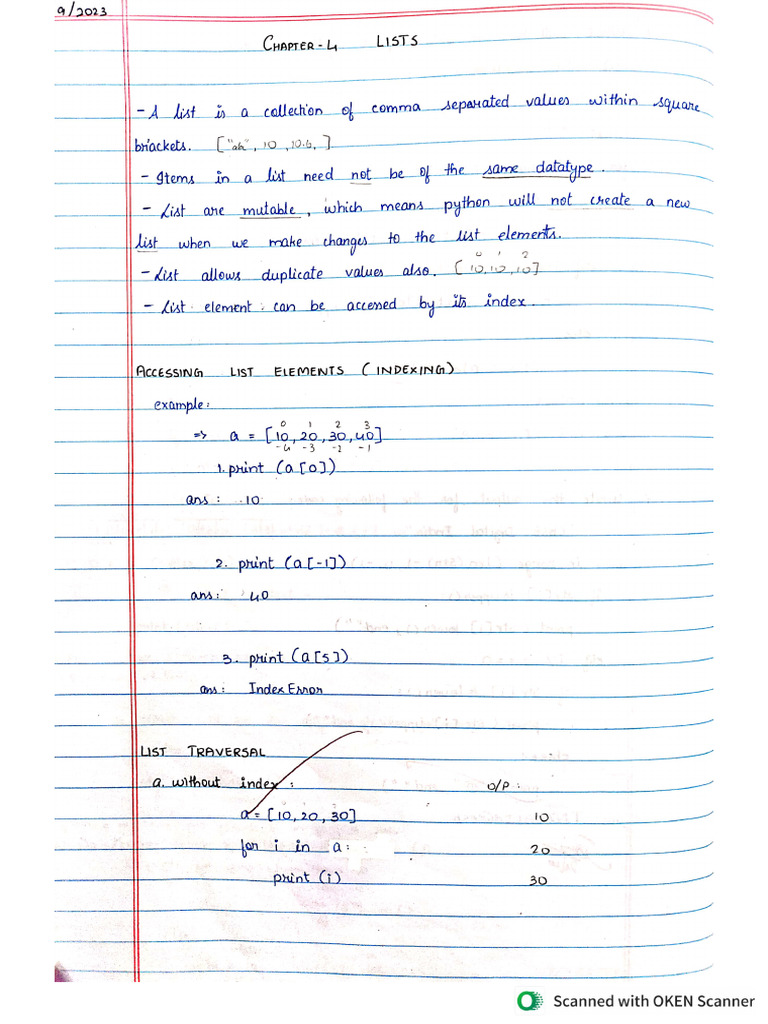 9/2023
CHAPTER-4 LISTS
- A list is a collection of comma separated values within square
brackets. ["ah", 10, 10.6, ]
- Items in a list need not be of the same datatype.
- List are mutable, which means python will not create a new
list when we make changes to the list elements.
0 1 2
- List allows duplicate values also. [10,10,10]
- List element can be accessed by its index.
ACCESSING LIST ELEMENTS (INDEXING)
example:
0 1 2 3
=> a = [10,20,30,40]
-4 -3 -2 -1
1. print (a[0])
ans: 10
2. print (a[-1])
ans: 40
3. print (a[5])
ans: Index Error
LIST TRAVERSAL
a. without index: O/P:
a = [10, 20, 30] 10
for i in a: 20
print (i) 30
Scanned with OKEN Scanner